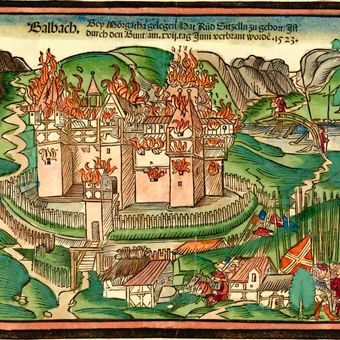 Balbach. Bey Mörgatha gelegen, Hat Rüd Sützelln zu gehört, Ist
durch den Bunt. am. xvij. tag Junij verbrant wordē. 1523.